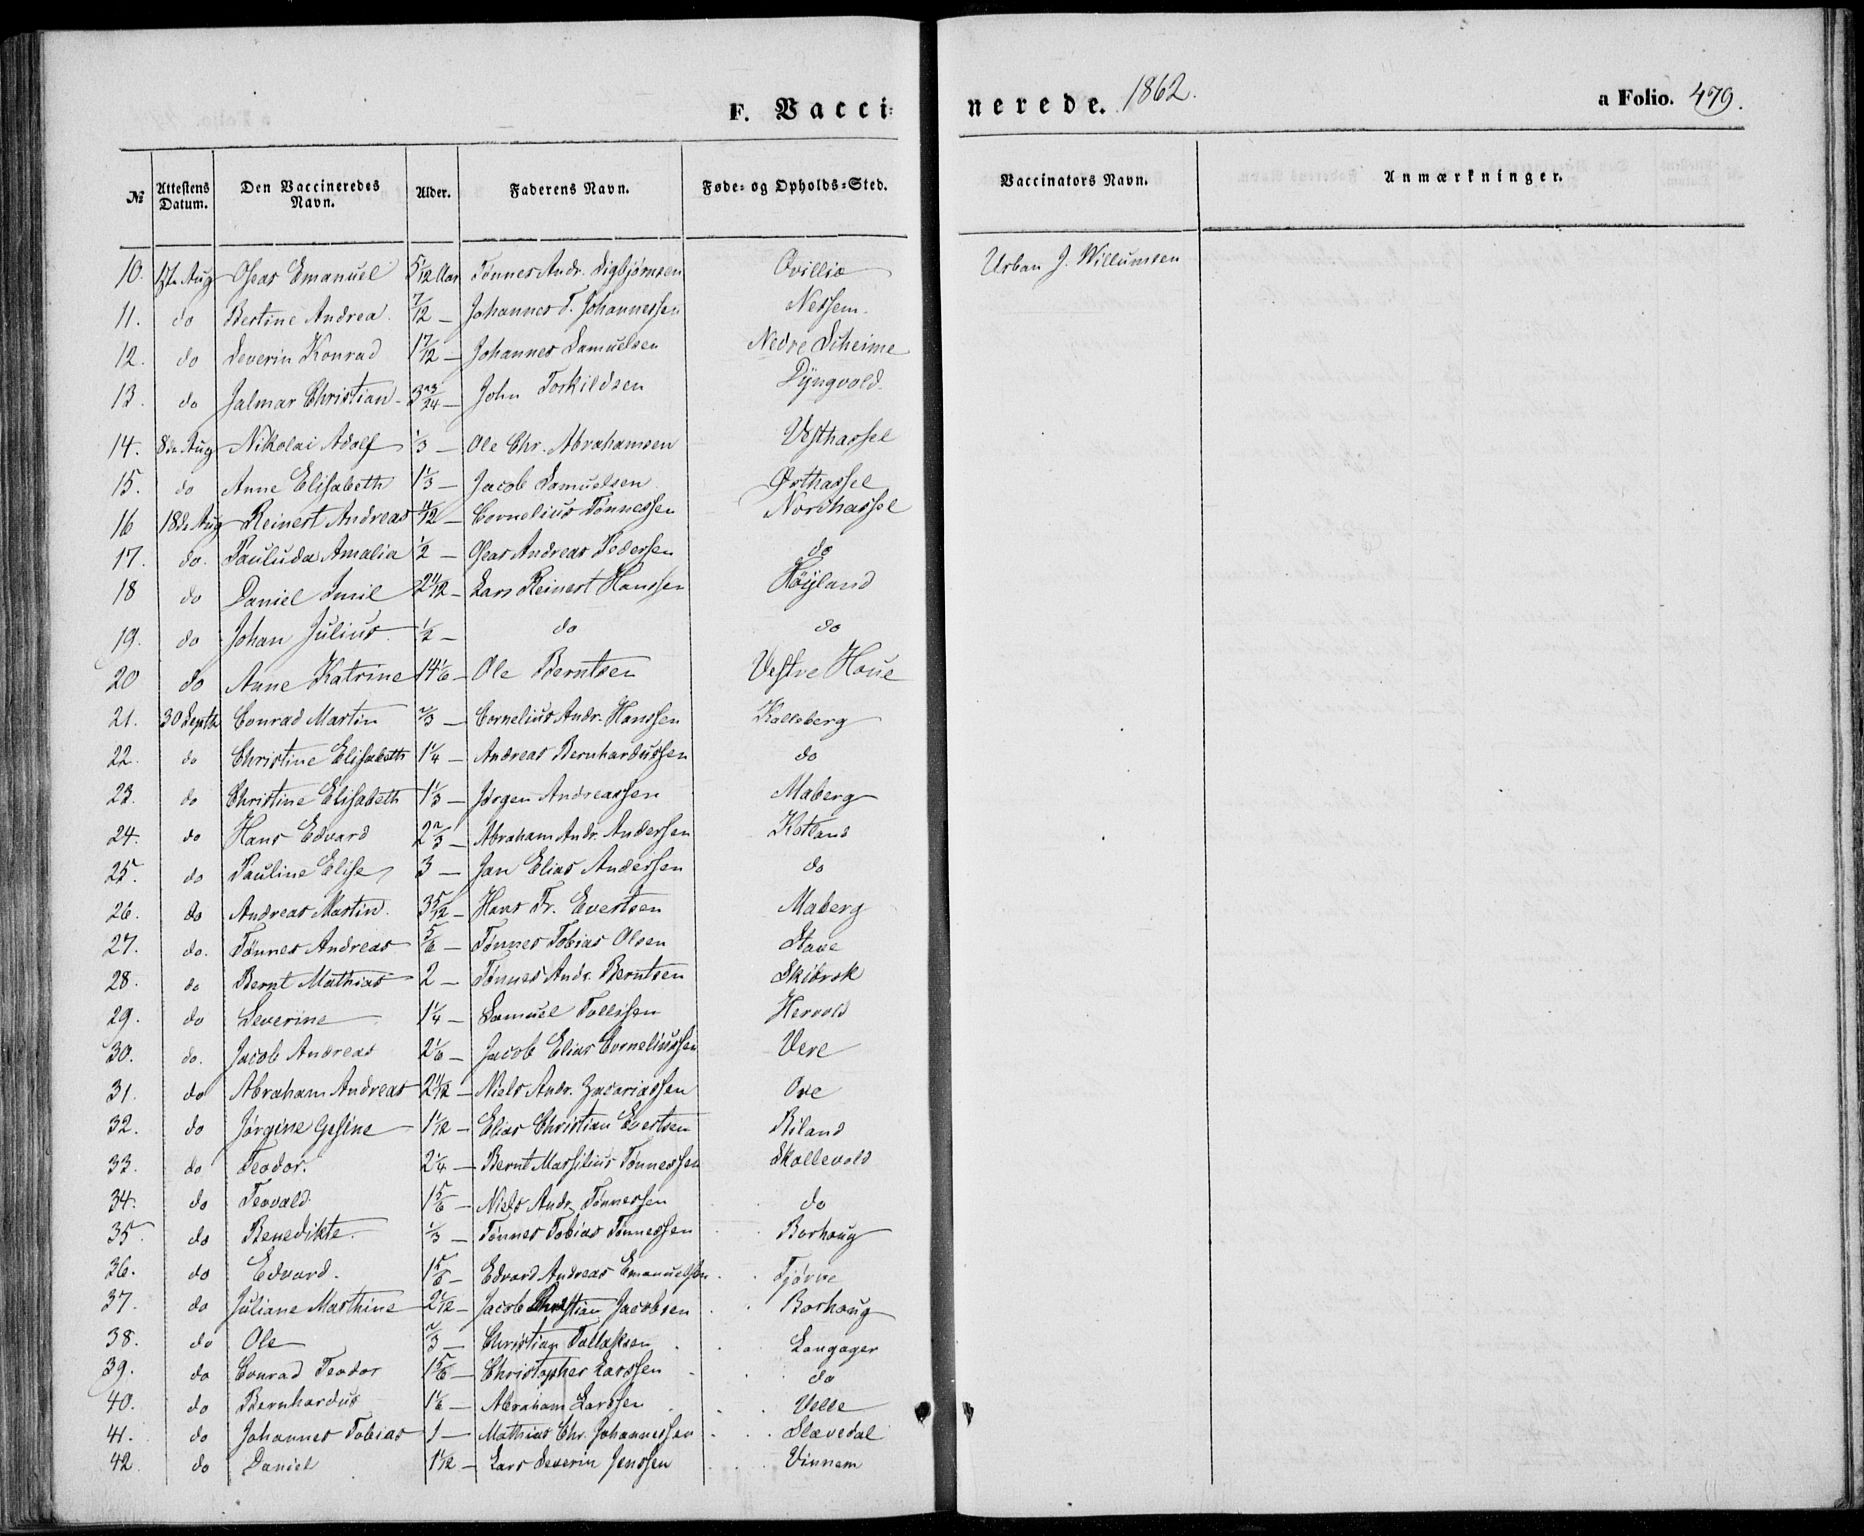 F. Vaccinerede. 1862. a Folio. 479.
№ Attestens Datum. Den Vaccineredes Navn. Alder. Faderens Navn. Føde- og Opholds-Sted. Vaccinators Navn. Anmærkninger.
10. Aug Oseas Emanuel 5/12 Aar Tønnes Andr. Sigbjørnsen Ovillie Urban J. Willumsen
11. do Bertine Andrea 7/12 — Johannes T. Johannessen Nessem.
12. do Severin Konrad 17/12 — Johannes Samuelsen Nedre Skeime
13. do Jalmar Christian 3 23/24 — John Torkildsen Dyngvold.
14. 8de Aug Nikolai Adolf 1/3 — Ole Chr. Abrahamsen Vesthassel
15. do Anne Elisabeth 1 1/3 — Jacob Samuelsen Østhassel
16 18de Aug Reinert Andreas 11/12 — Cornelius Tønnessen Nordhassel
17. do. Pauluda Amalia 1/2 — Oleas Andreas Pedersen do
18 do Daniel Emil 2 11/12 — Lars Reinert Hanssen Høyland
19. do Johan Julius 1/2 — do do
20 do Anne Katrine 14 1/6 — Ole Berntsen Vestre Haue
21. 30 Septbr Conrad Martin 2/3 — Cornelius Andr. Hanssen Kalleberg
22. do Christine Elisabeth 1 1/4 — Andreas Bernhardussen do
23. do Christine Elisabeth 1 1/3 — Jørgen Andreassen Maberg
24. do Hans Edvard 2 2/3 — Abraham Andr. Anderssen Kotland
25. do Pauline Elise 3 — Jan Elias Anderssen do
26. do Andreas Martin. 3 5/12 — Hans Fr. Evertsen Maberg
27. do. Tønnes Andreas 5/6 — Tønnes Tobias Olsen Stave
28. do Bernt Mathias 2 — Tønnes Andr. Berntsen Skibrok
29. do Severine 1 1/4 — Samuel Tollisen Hervold
30. do. Jacob Andreas 2 1/6 — Jacob Elias Corneliussen Vere
31. do Abraham Andreas 2 11/12 — Niels Andr. Zacariassen Ore
32. do Jørgine Gesine 1 1/12 — Elias Christian Evertsen Riland
33. do Teodor. 2 1/4 — Bernt Marsilius Tønnessen Skollevold
34. do Tevald. 1 5/6 — Niels Andr. Tønnessen do
35. do Benedikte. 1/3 — Tønnes Tobias Tønnessen Borhaug
36. do Edvard. 1 5/6 — Edvard Andreas Emanuelsen Tjørve
37. do Juliane Marthine 2 1/12 — Jacob Christian Jacobsen Borhaug
38. do Ole 2/3 — Christian Tallaksen Langager
39. do Conrad Teodor 1 5/6 — Christopher Larssen do
40. do Bernhardus 1 1/6 — Abraham Larssen Velle
41. do Johannes Tobias 1 — Mathias Chr. Johannessen Slævedal
42 do Daniel 1 1/12 — Lars Severin Jenssen Vinnem